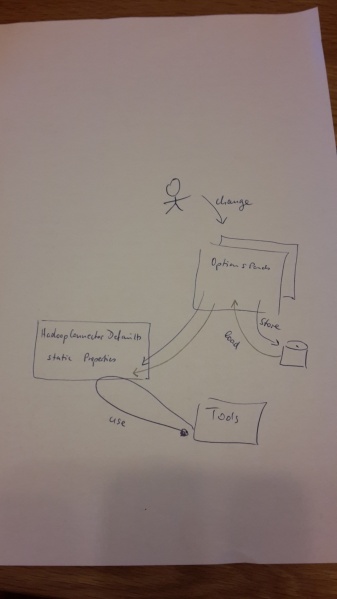 change
Options Panels
Store
load
HadoopConnector Defaults
static Properties
use
Tools